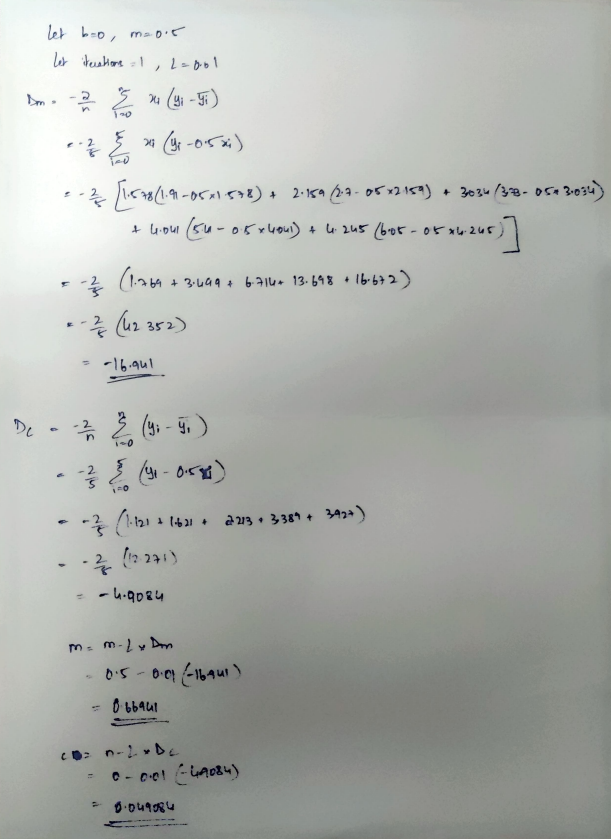 Let b=0, m=0.5
Let iterations = 1, L = 0.01
Dm = -2/n Σ_{i=0}^{n} xi (yi - ȳi)
= -2/5 Σ_{i=0}^{5} xi (yi - 0.5xi)
= -2/5 [1.578(1.91 - 0.5×1.578) + 2.159(2.7 - 0.5×2.159) + 3.034(3.73 - 0.5×3.034)
+ 4.041(5.4 - 0.5×4.041) + 4.245(6.05 - 0.5×4.245)]
= -2/5 (1.769 + 3.499 + 6.714 + 13.698 + 16.672)
= -2/5 (42.352)
= -16.941
Dc = -2/n Σ_{i=0}^{n} (yi - ȳi)
= -2/5 Σ_{i=0}^{5} (yi - 0.5xi)
= -2/5 (1.121 + 1.621 + 2.213 + 3.389 + 3.927)
= -2/5 (12.271)
= -4.9084
m = m - L × Dm
= 0.5 - 0.01 (-16.941)
= 0.66941
c = n - L × Dc
= 0 - 0.01 (-4.9084)
= 0.049084